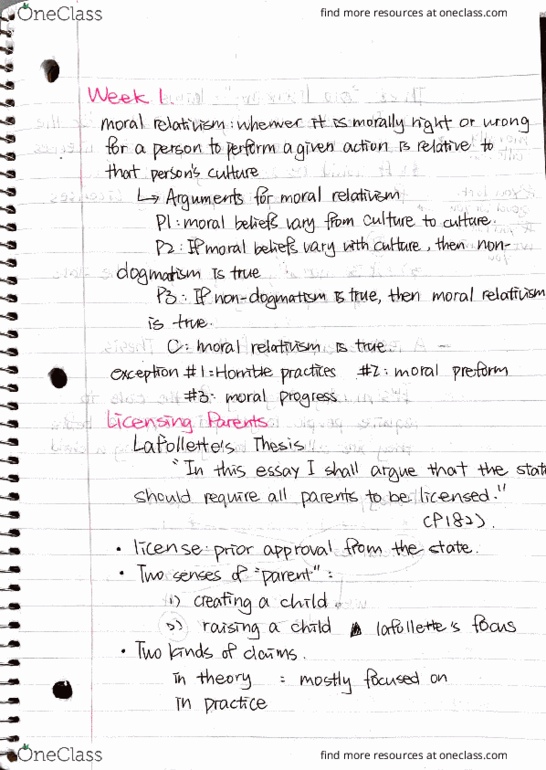 OneClass
find more resources at oneclass.com
Week 1
moral relativism: whenver it is morally right or wrong
for a person to perform a given action is relative to
that person's culture
↳ Arguments for moral relativism
P1: moral beliefs vary from culture to culture.
P2: If moral beliefs vary with culture, then non-
dogmatism is true
P3: If non-dogmatism is true, then moral relativism
is true.
C: moral relativism is true.
exception #1: Horrible practices #2: moral preform
#3: moral progress
Licensing Parents
Lafollette's Thesis
"In this essay I shall argue that the state
should require all parents to be licensed."
(P182).
• license: prior approval from the state.
• Two senses of "parent":
1) creating a child
2) raising a child lafollette's focus
• Two kinds of claims.
in theory : mostly focused on
in practice
OneClass
find more resources at oneclass.com